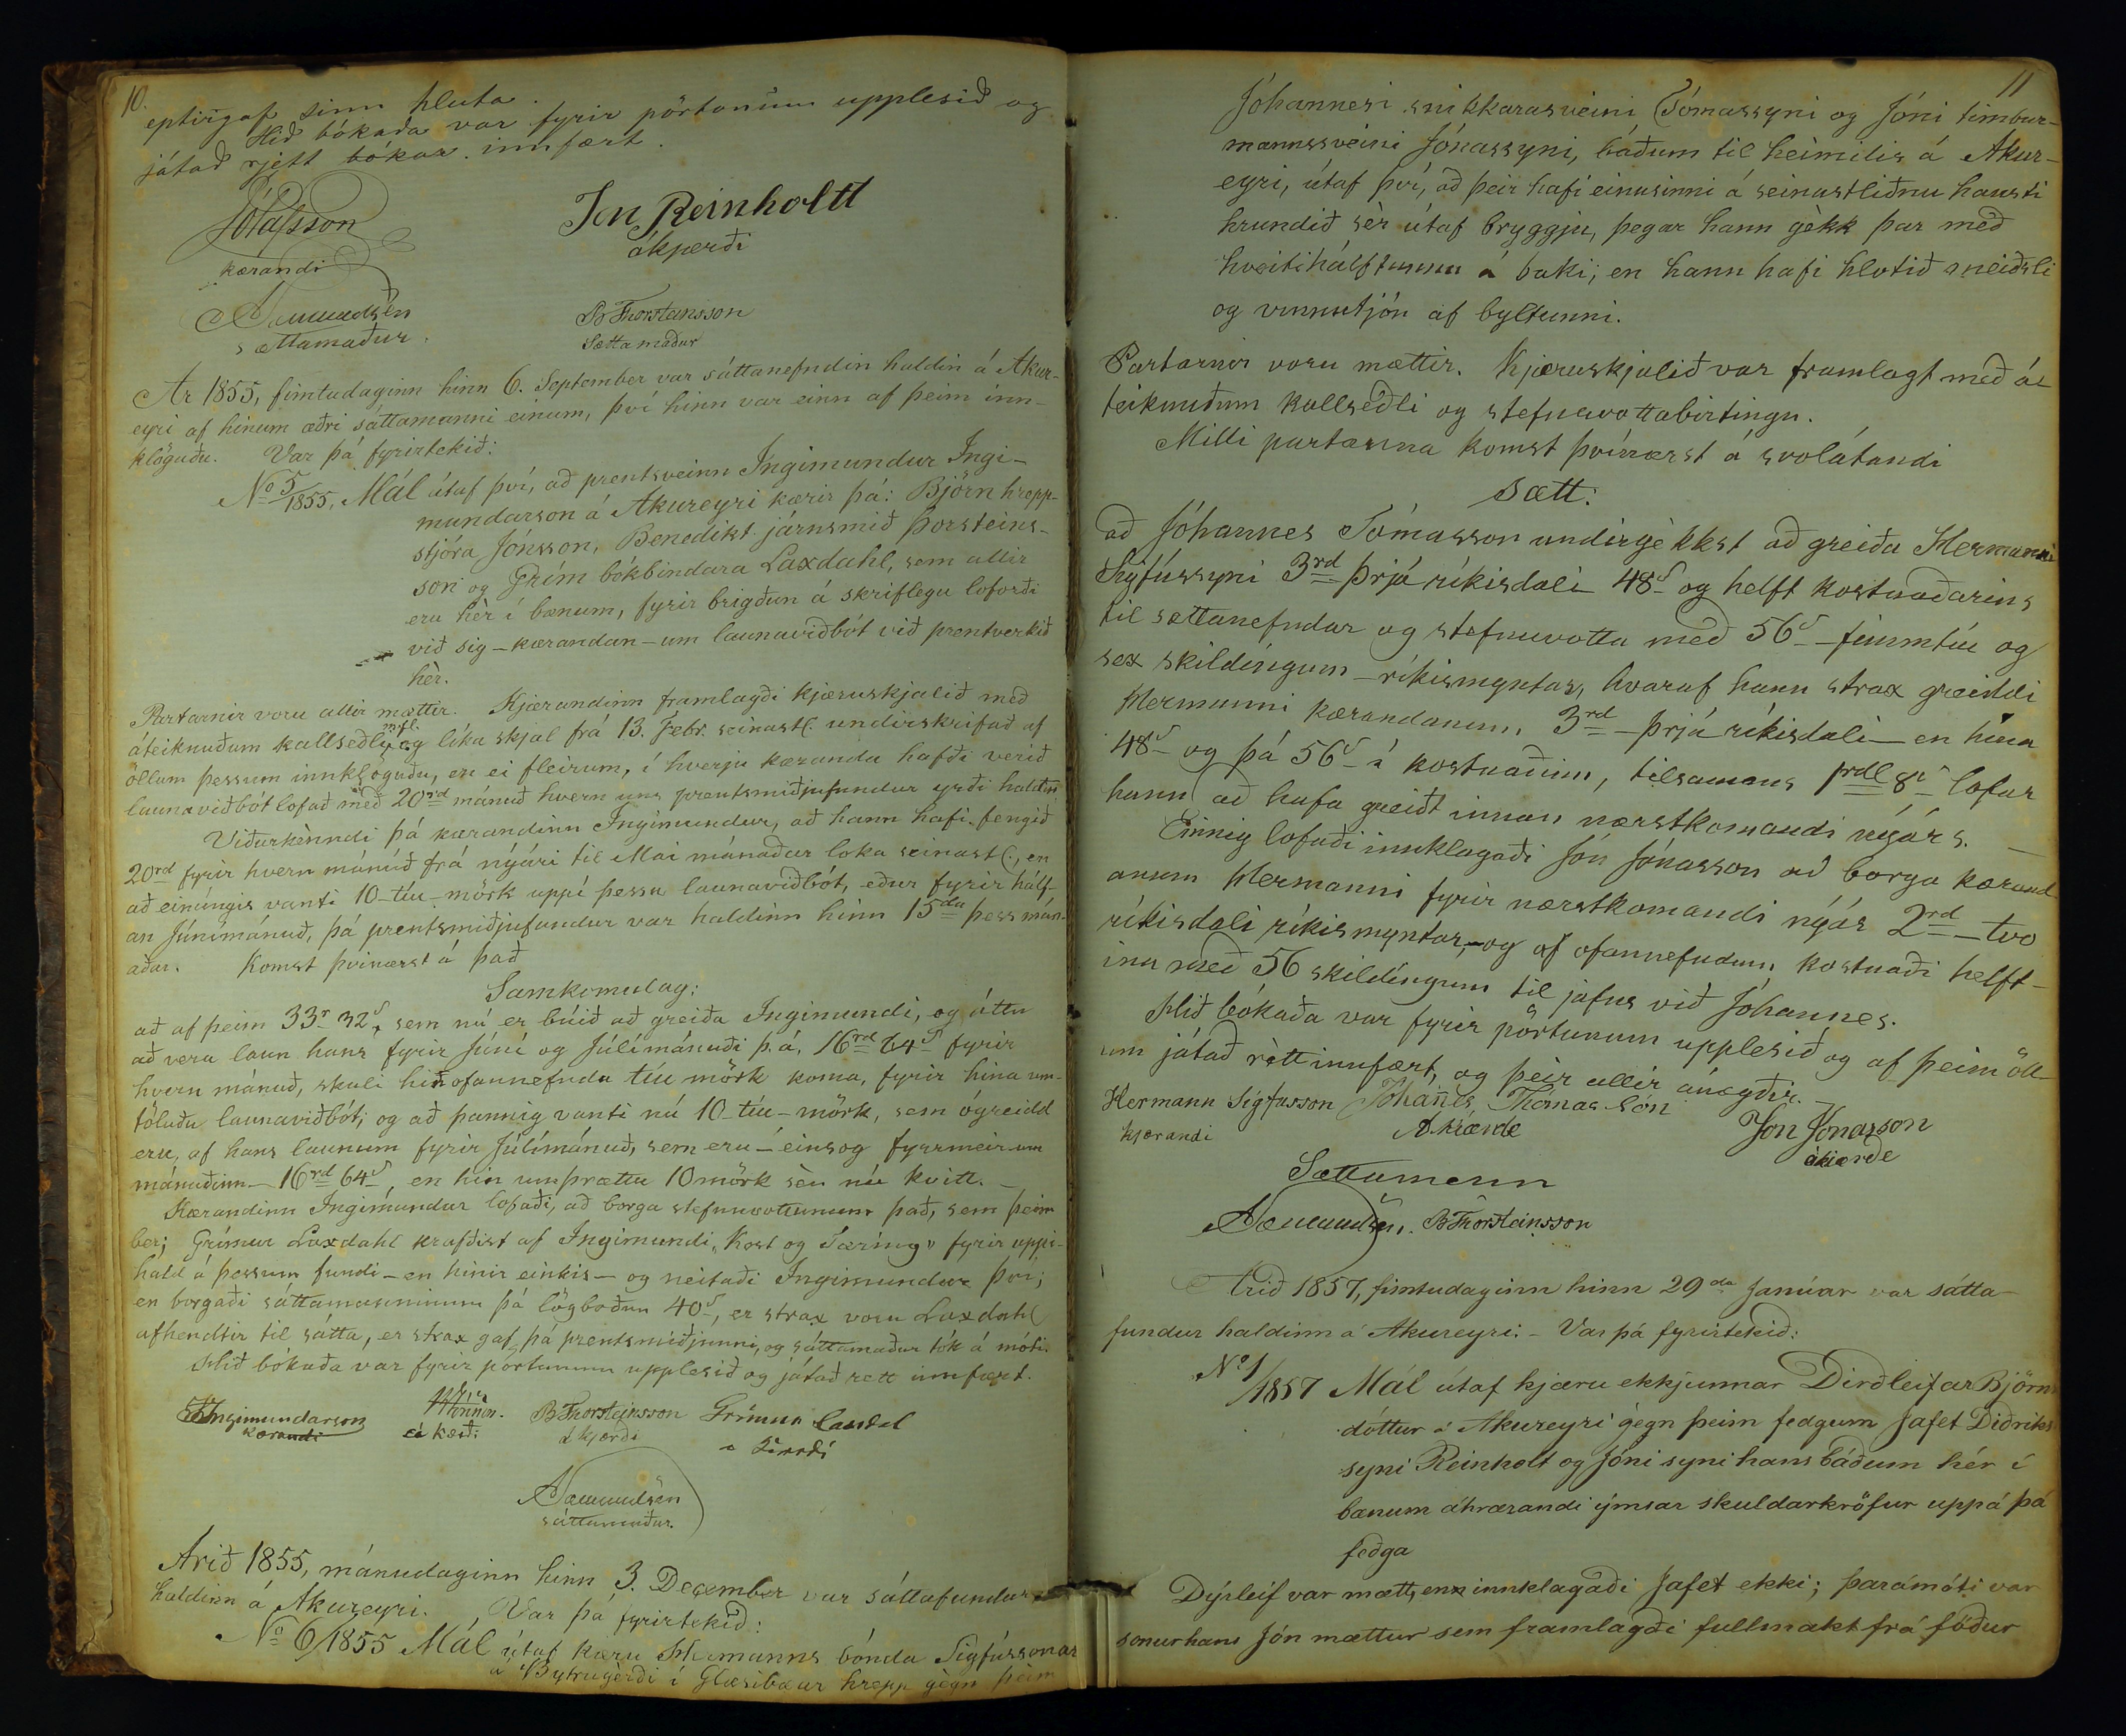 10.
eptirgaf sinn hluta.
Hið bókaða var fyrir pörtunum upplesið og
játað rjett bókar. innfært.
JÓlafsson
kærandi
Jon Reinholtt
ákjærði
ASæmundsen
sættamaður.
B Thorsteinsson
Sættamaður
Ar 1855, fimtudaginn hinn 6. September var sáttanefndin haldin á Akur-
eyri af hinum æðri sáttamanni einum, því hinn var einn af þeim inn-
klöguðu. Var þá fyrirtekið:
No 5/1855, Mál útaf því, að prentsveinn Ingimundur Ingi-
mundarson á Akureyri kærir þá: Björn hrepp-
stjóra Jónsson, Benedikt járnsmið Þorsteins-
son og Grím bókbindara Laxdahl, sem allir
eru hèr í bænum, fyrir brigðun á skriflegu loforði
við sig - kærandan - um launaviðbót við prentverkið
hèr.
Partarnir voru allir mættir. Kjærandinn framlagði kjæruskjalið með
áteiknuðum kallseðli, m.fl. og líka skjal frá 13. Febr. seinastl. undirskrifað af
öllum þessum innklöguðu, en ei fleirum, í hverju kæranda hafði verið
launaviðbót lofað með 20rd mánuð hvern uns prentsmiðjufundur yrði haldin
Viðurkenndi þá kærandinn Ingimundur, að hann hafi fengið
20rd fyrir hvern mánuð frá nýári til Mai mánaðar loka seinastl., en
að einúngis vanti 10-tíu-mörk uppí þessa launaviðbót, eður fyrir hálf-
an Júnímánuð, þá prentsmiðjufundur var haldinn hinn 15da þess mán-
aðar. Komst þvínærst á það
Samkomulag:
að af þeim 33r 32s, sem nú er búið að greiða Ingimundi, og áttu
að vera laun hans fyrir Júní og Júlímánuði þ.á. 16rd 64s fyrir
hvern mánuð, skuli hin ofannefndu tíu mörk koma, fyrir hina um-
töluðu launaviðbót; og að þannig vanti nú 10-tíu-mörk, sem ógreidd
eru, af hans launum fyrir Júlímánuð, sem eru - einsog fyrrmeir um
mánuðinn - 16rd 64s, en hin umþrættu 10 mörk sèu nú kvitt. -
Kærandinn Ingimundur lofaði, að borga stefnuvottunum það, sem þeim
ber; Grímur Laxdahl krafðist af Ingimundi „Kost og Tæring" fyrir uppi-
hald á þessum fundi - en hinir einkis - og neitaði Ingimundur því;
en borgaði sáttamanninum þá lögboðnu 40s, er strax voru Laxdahl
afhendtir til sátta, er strax gaf þá prentsmiðjunni, og sáttamaður tók á móti.
Hið bókaða var fyrir pörtunum upplesið og játað rett innfært.
Ingimundarson
kærandi
ákærði
B Thorsteinsson
ákjærði
Grímur Laxdal
ASæmundsen
sáttamaður.
Arið 1855, mánudaginn hinn 3. December var sáttafundur
haldinn á Akureyri. Var þá fyrirtekið:
No 6/1855 Mál útaf kæru Hermanns bónda Sigfússonar
á Bytrugèrði í Glæsibæar hrepp gègn þeim
11
Jóhannesi snikkarasveini Tómassyni og Jóni timbur-
mannssveini Jónassyni, báðum til heimilis á Akur-
eyri, útaf því, að þeir hafi einusinni á seinastliðnu hausti
hrundið sèr útaf bryggju, þegar hann gèkk þar með
hveitihálftunnu á baki; en hann hafi hlotið meiðsli
og vinnutjón af byltunni.
Partarnir voru mættir. Kjæruskjalið var framlagt með á-
teiknuðum kallseðli og stefnuvottabirtingu.
Milli partanna komst þvínærst á svolátandi
Sætt:
að Jóhannes Tómasson undirgèkkst að greiða Hermanni
Sigfússyni 3rd þrjá ríkisdali 48s og helft kostnaðarins
til sættanefndar og stefnuvotta með 56s - fimmtíu og
sex skildíngum - ríkismyntar, hvaraf hann strax greiddi
Hermanni kærandanum, 3rd - þrjá ríkisdali - en hina
48s og þá 56s í kostnaðinn, tilsamans 1rdl 8s lofar
hann að hafa greiðt innan nærstkomandi nýárs. -
Einnig lofaði innklagaði Jón Jónasson að borga kærand
anum Hermanni fyrir nærstkomandi nýár 2rd - tvo
ríkisdali ríkismyntar, - og af ofannefndum kostnaði helft-
ina með 56 skildíngum til jafns við Jóhannes.
Hið bókaða var fyrir pörtunum upplesið og af þeim öll-
um játað rètt innfært, og þeir allir ánægðir.
Hermann Sigfusson
kjærandi
Johannes Thomas Són
Akiærde
Jón Jónasson
ákiærde
Sættamenn
ASæmundsen. B Thorsteinsson
Arið 1857, fimtudaginn hinn 29da Janúar var sátta-
fundur haldinn á Akureyri. - Var þá fyrirtekið:
No 1/1857 Mál útaf kjæru ekkjunnar Dirðleifar Björns
dóttur á Akureyri gegn þeim fedgum Jafet Diðriks
syni Reinholt og Jóni syni hans báðum hér í
bænum áhrærandi ýmsar skuldarkröfur uppá þá
feðga
Dýrleif var mætt, enn innklagaði Jafet ekki; þarámóti var
sonur hans Jón mættur sem framlagði fullmakt frá föður